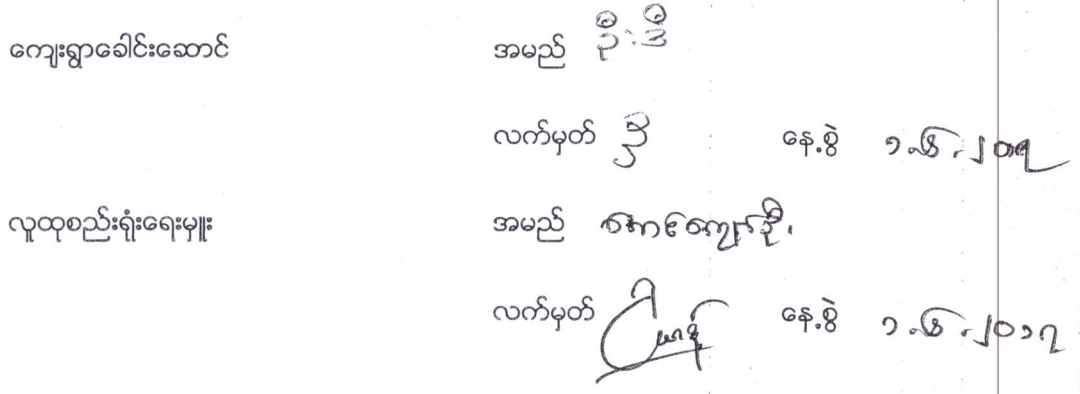 ကျေးရွာခေါင်းဆောင် အမည် ဦးဒီ
လက်မှတ် နေ့စွဲ ၁.၆.၂၀၁၇
လူထုစည်းရုံးရေးမှူး အမည်
လက်မှတ် နေ့စွဲ ၁.၆.၂၀၁၇